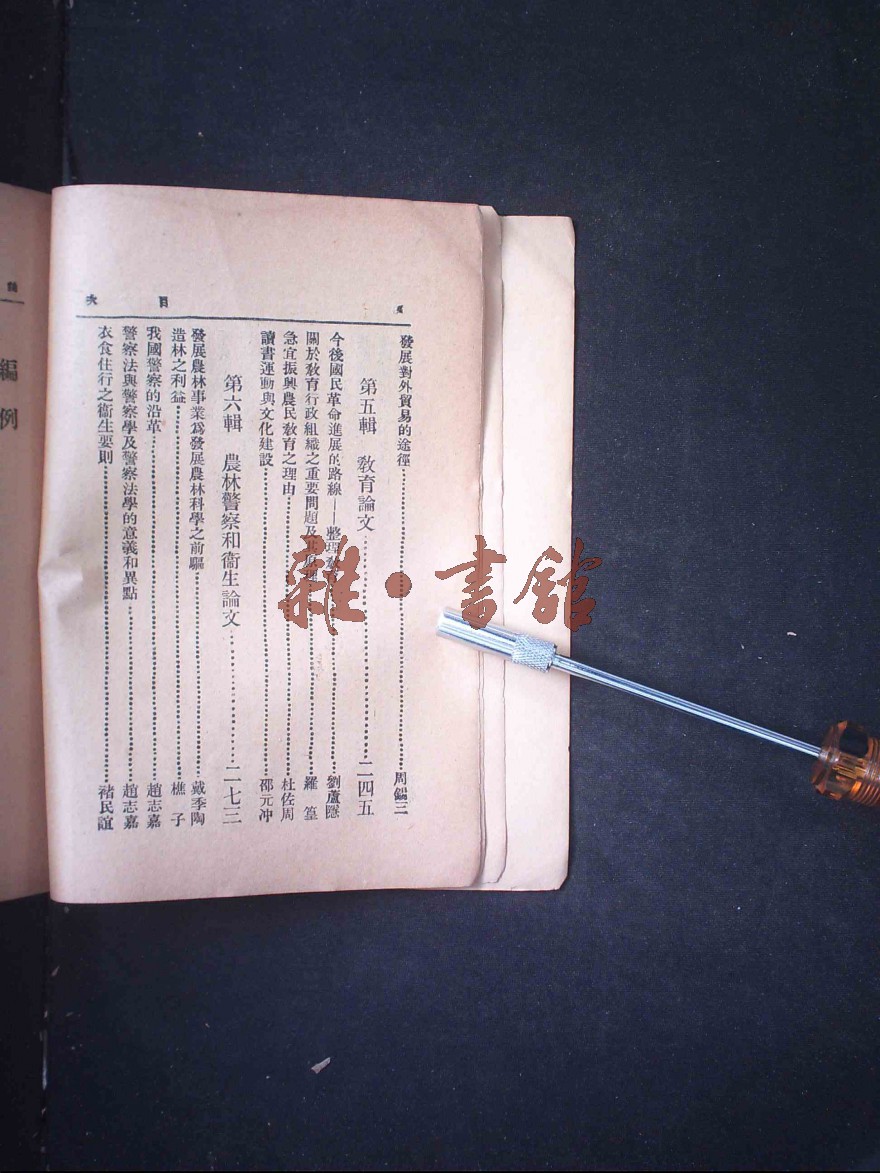 目 次
發展對外貿易的途徑……周錫三
第五輯 教育論文……二四五
今後國民革命進展的路線——整理教育……劉蘆隱
關於教育行政組織之重要問題及其……羅篁
急宜振興農民教育之理由……杜佐周
讀書運動與文化建設……邵元冲
第六輯 農林警察和衞生論文……二七三
發展農林事業爲發展農林科學之前驅……戴季陶
造林之利益……樵子
我國警察的沿革……趙志嘉
警察法與警察學及警察法學的意義和異點……趙志嘉
衣食住行之衞生要則……褚民誼
編例
雜·書館